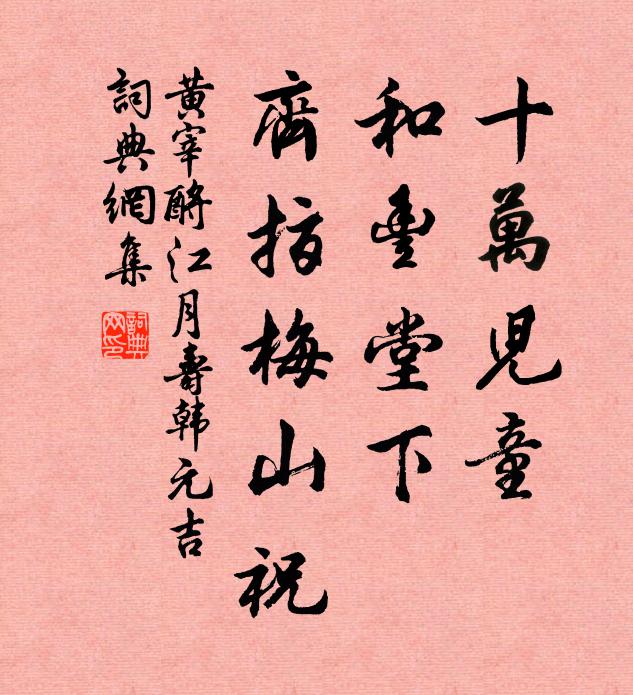 十萬兒童
和豐堂下
齊指梅山祝
黃宰酹江月壽韓元吉
詞典網集
詞典網印